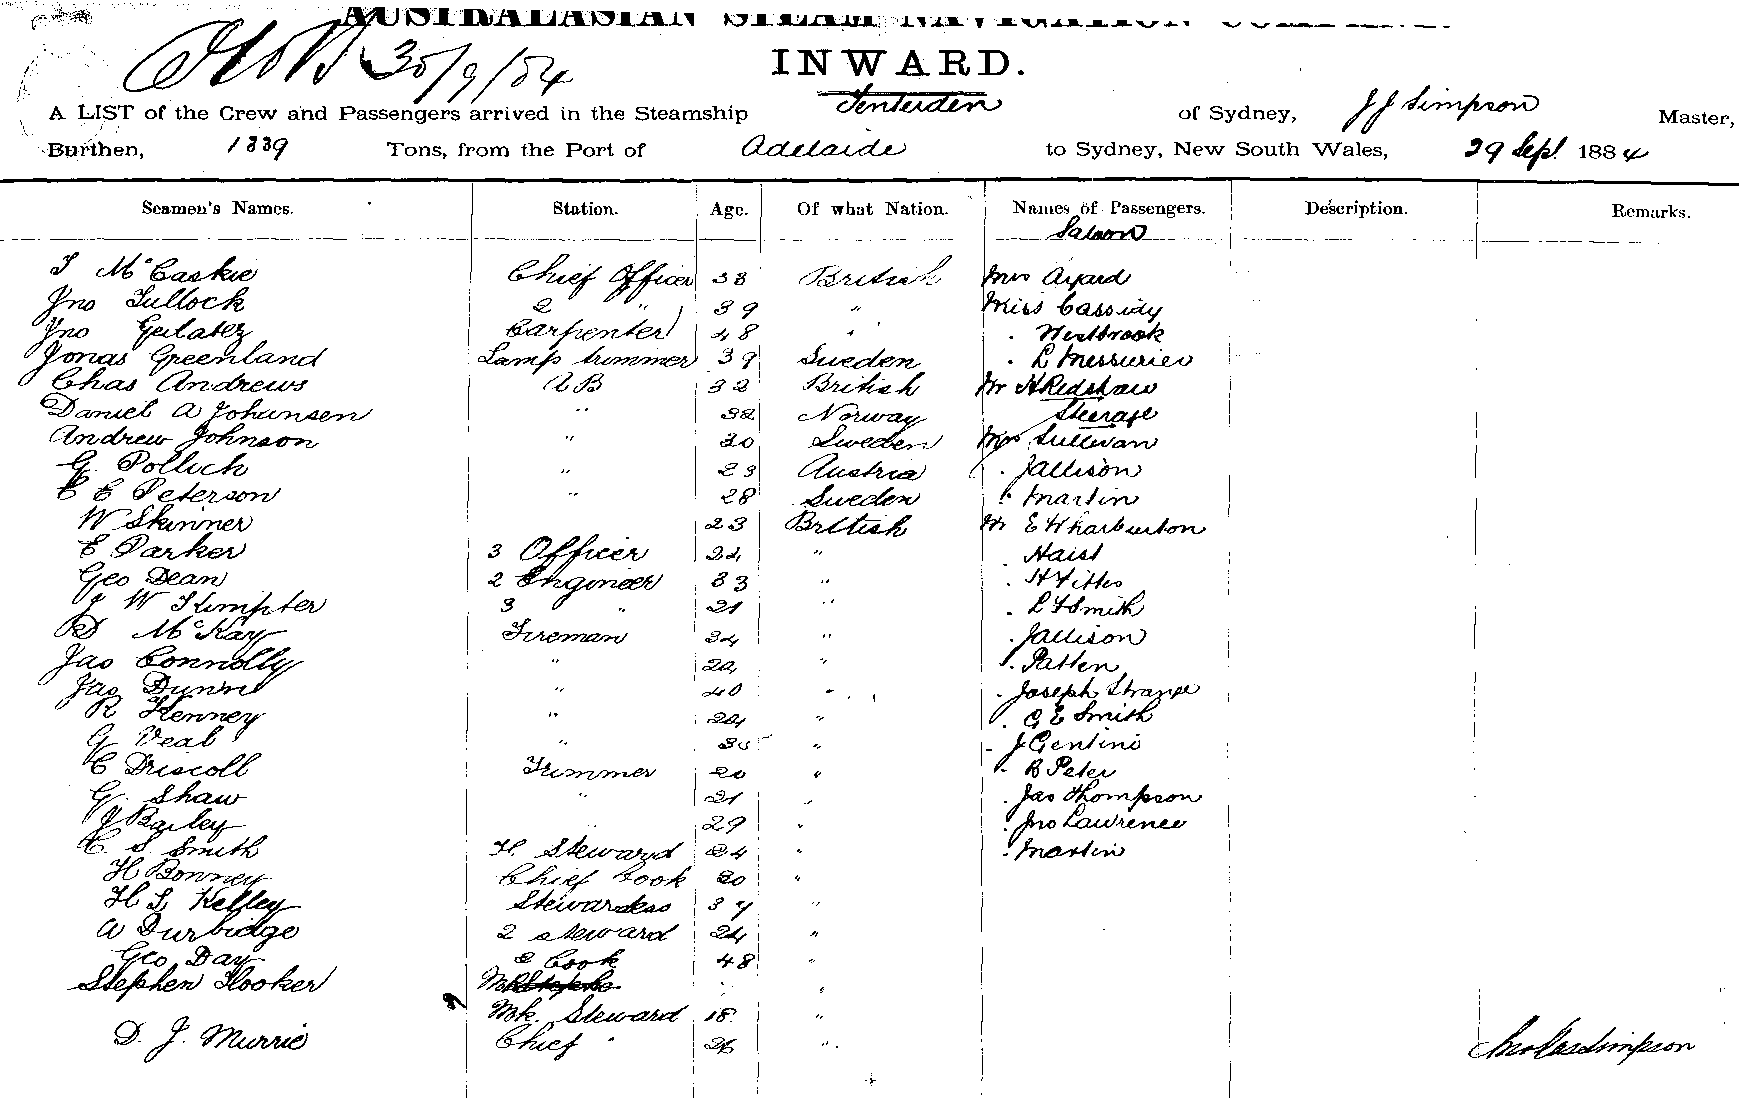 AUSTRALASIAN STEAM NAVIGATION
30/9/84
INWARD.
A LIST of the Crew and Passengers arrived in the Steamship Tenterden of Sydney, J J Simpson Master,
Burthen, 1339 Tons, from the Port of Adelaide to Sydney, New South Wales, 29 Sept. 1884
Seamen's Names. Station. Age. Of what Nation. Names of Passengers. Description. Remarks.
Saloon
McCaskie Chief Officer 38 British Mrs
Jno Tullock 2 " 39 " Miss Cassidy
Jno Carpenter 48 " . Westbrook
Jonas Greenland Lamp trimmer 39 Sweden . L Messurier
Chas Andrews A B 32 British Mr H Redshaw
Daniel A Johansen " 32 Norway Steerage
Andrew Johnson " 30 Sweden Mrs Sullivan
G. Pollich " 23 Austria . Jallison
E Peterson " 28 Sweden . Martin
W Skinner 23 British Mr E Wharburton
E Parker 3 Officer 24 " . Haist
Geo Dean 2 Engineer 33 " .
J W Kimpter 3 " 21 " . L Smith
D McKay Fireman 34 " . Jallison
Jas Connolly " 24 " . Patten
Jas Dunn " 40 " . Joseph Strange
R Kenney " 24 " . G E Smith
G Veal " " . J Gentini
C Driscoll Trimmer 20 " . B Peter
G. Shaw " 21 " . Jas Thompson
J Bailey 29 " . Jno Lawrence
C. S. Smith H. Steward 24 " . Martin
H Bonney Chief Cook 30 "
H L Kelley Stewardess 37 "
A Durbidge 2 Steward 24 "
Geo Day 2 Cook 48 "
Stephen Hooker "
Mk. Steward 18 "
D. J. Murrie Chief " 26 "
Simpson